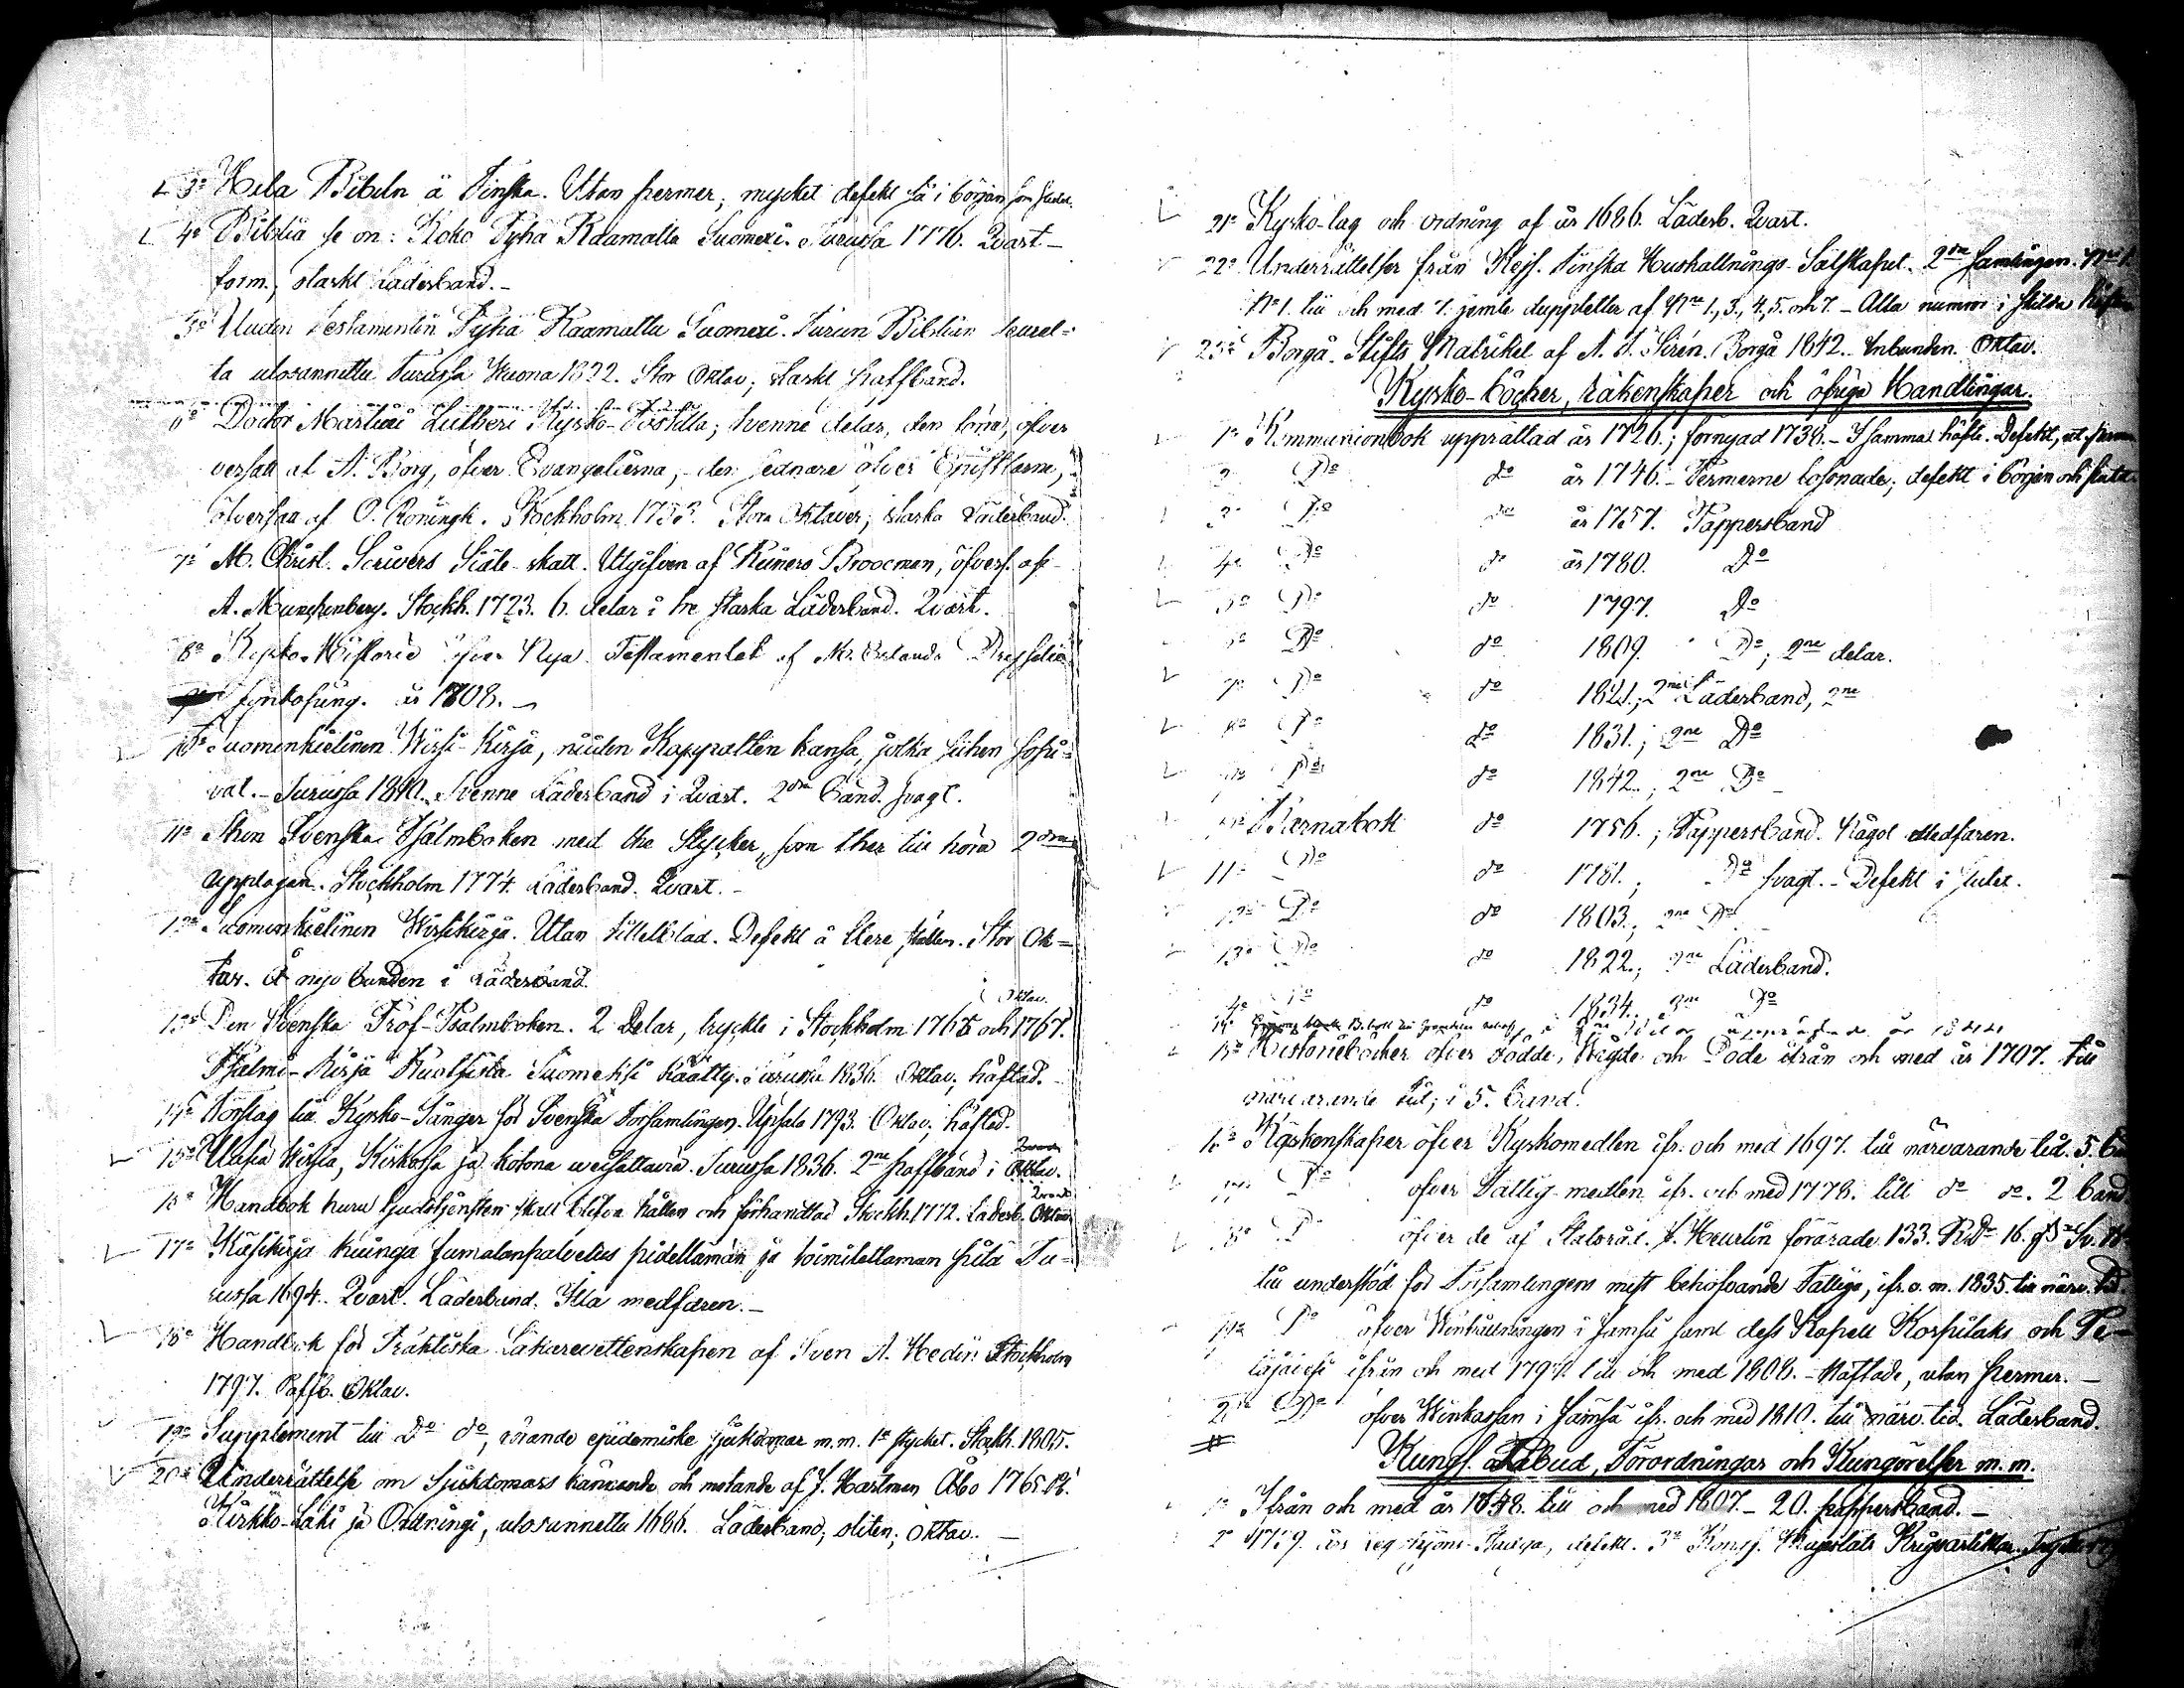 3o Hela Bibeln å Finska. Utan permer; mycket defekt så i början som slutet.
4o Biblia se on: Koko Pyhä Raamattu Suomexi. Turussa 1776. Qvart-
form; starkt Läderband.-
5o Uuden Testamentin Pyhä Raamattu Suomexi. Turun Biblian seural=
ta ulosannettu Turussa Wuona 1822. Stor Oktav; starkt Paffband.
6o Doctor Martini Lutheri Kyrko-Postilla; tvenne delar, den förra, öfver
versatt af A. Borg, öfver Evangelierna, den sednare öfver Epistlarne,
öfversatt af O. Rönigk. Stockholm 1753. Stora Oktaver; starka Läderband.
7o M. Christ. Scrivers Siäle-skatt. Utgifven af Reiners Broocman, öfvers. af
A. Münchenberg. Stockh. 1723. 6. delar i tre starka Läderband. Qvart.
8o Kyrko-Historia öfver Nya Testamentet af Mr. Erlando
Lynköping. år 1708.-
10o Suomenkielinen Wirsi-Kirja, niiden Kappalten kansa, jotka siihen sopi=
vat.- Turussa 1810. Tvenne Läderband i Qvart. 2dra band. svagt.
11o Then Svenska Psalmboken med the Stycker, som ther till höra 2dra
Upplagan. Stockholm 1774. Läderband. Qvart.-
12o Suomenkielinen Wirsikirja. Utan tittelblad. Defekt å flere ställen. Stor Ok=
tav. å nyo bunden i Läderband.
Oktav.
13o Den Svenska Prof-Psalmboken. 2 Delar, tryckte i Stockholm 1765 och 1767.
Psalmi-Kirja Ruotsista Suomeksi käätty. Turussa 1836. Oktav; häftad.
14o Förslag till Kyrko-Sånger för Svenska Församlingen. Upsala 1793. Oktav; häftad.
15o Uusia Wirsia, Kirkossa ja kotona weisattavia. Turussa 1836. 2ne Paffband i Oktav.
16o Handbok huru Gudstjensten skall blifva hållen och förhandlad Stockh. 1772. Läderb. Oktav
17o Käsikirja kuinga jumalanpalvelus pidettämän ja toimitettaman pitä Tu=
russa 1694. Qvart. Läderband. Illa medfaren.-
18o Handbok för Praktiska Läkarevettenskapen af Sven A. Hedin Stockholm
1797. Paffb. Oktav.
19o Supplement till Do do, rörande epidemiske sjukdomar m.m. 1a stycket. Stockh. 1805.
20o Underrättelse om Sjukdomars kännande och motande af J. Hartman Åbo 1765.
Kirkko-Laki ja Ordningi, ulosannettu 1686. Läderband; sliten; Oktav.
21o Kyrko-lag och ordning af år 1686. Läderb. Qvart.
22o Underrättelser från Kejs. Finska Hushållnings-Sälskapet. 2dra Samlingen.
No 1. till och med 7. jemte duppletter af Nro 1., 3., 4, 5. och 7. - Alla numror i skilda häften
23o Borgå Stifts Matrikel af A. F. Sirén. Borgå 1842. Inbunden. Oktav.
Kyrko-böcker, räkenskaper och öfriga Handlingar.
1o Kommunionbok upprättad år 1726.; förnyad 1738.- I samma häfte. Defekt, ut. permar
2 Do do år 1746.- Permerne lossnade; defekt i början och slutet
3o Do do år 1757. Pappersband
4o Do do år 1780. Do
5o Do do 1797. Do
6o Do do 1809. Do; 2ne delar.
7o Do do 1821.; 2ne Läderband, 2ne
8o Do do 1831.; 2ne Do
9o Do do 1842.; 2ne Do
10o Barnabok do 1756.; Pappersband. Något medfaren.
11o Do do 1781.; Do svagt.- Defekt i slutet.
12o Do do 1803.; 2ne Do
13o Do do 1822.; 2ne Läderband.
14o Do do 1834. 2ne Do
15o Historieböcker öfver Födde, Wigde och Döde ifrån och med år 1707. till
närvarande tid; i 5. band.
16o Räkenskaper öfver Kyrkomedlen ifr. och med 1697. till närvarande tid. 5. ba
17o Do öfver Fattig-medlen ifr. och med 1778. till do do. 2 band
18o Do öfver de af Statsråd. J. Heurlin förärade 133. RDr 16.
till understöd för Församlingens mest behöfvande Fattiga, ifr. o. m. 1835. till närv. tid.
19o Do öfver Winhållningen i Jämsä samt dess Kapell Korpilaks och Pe-
täjävesi ifrån och med 1797. till och med 1808.- Häftade, utan permer.-
20 Do öfver Winkassan i Jämsä ifr. och med 1810. till närv. tid. Läderband.
Kungl. Påbud, Förordningar och Kungörelser m. m.
1o Ifrån och med år 1648. till och med 1807.- 20. pappersband.-